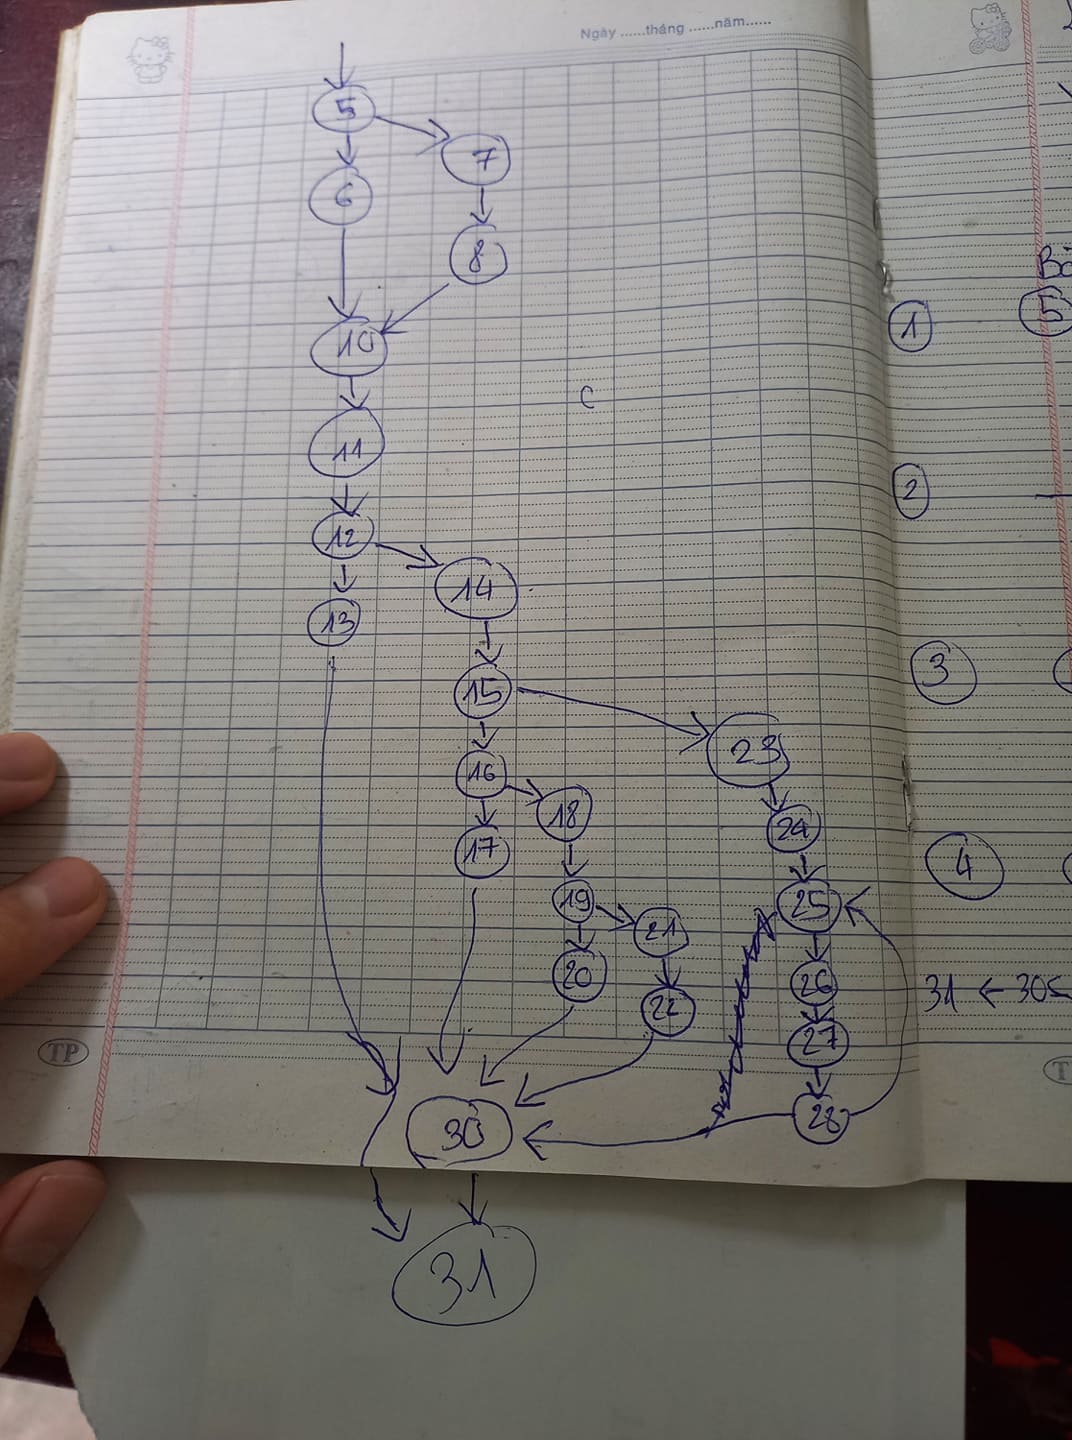 Ngày ......tháng ......năm......
5
7
6
8
10
11
12
14
13
15
23
16
18
24
17
19
25
21
20
26
22
27
28
30
31
C
TP
1
5
2
3
4
31 ← 30